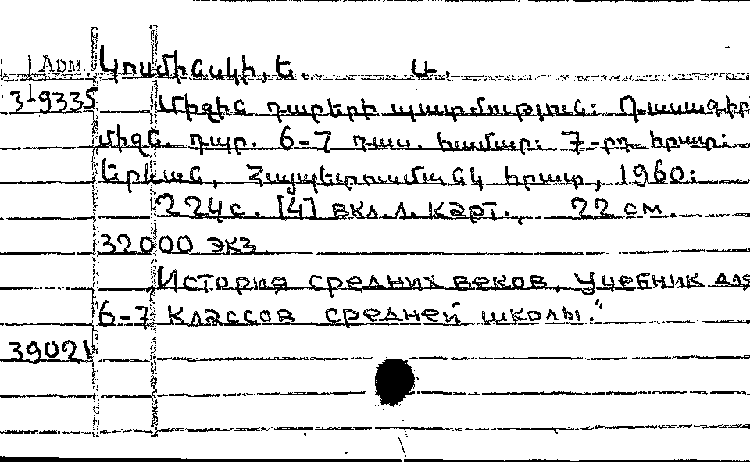 Арм. Կոսմինսկի, Ե. Ա.
3-9335 Միջին դարերի պատմություն: Դասագիրք
միջն. դպր. 6-7 դաս. համար: 7-րդ հրատ:
Երևան, Հայպետուսմանկ հրատ, 1960:
224с. [4] вкл.л. карт., 22 см.
32000 экз.
"История средних веков. Учебник для
6-7 классов средней школы."
39021